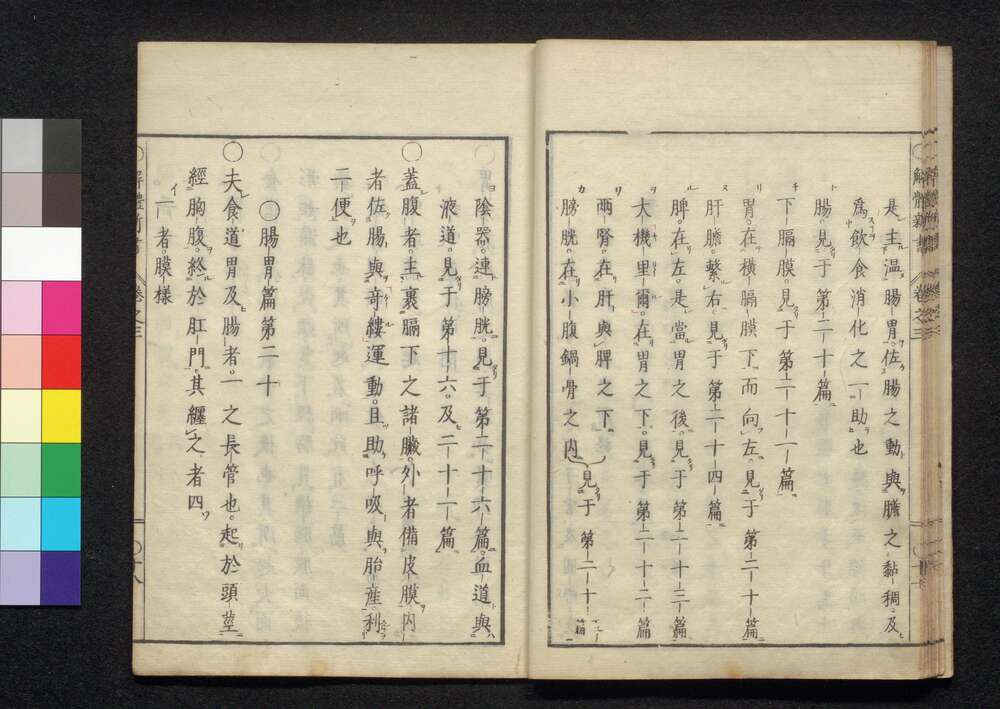 是主温腸胃。佐腸之動與膽之黏稠及
爲飲食消化之一助也
腸。見于第二十篇
下膈膜。見于第二十一篇
胃。在横膈膜下而向左。見于第二十篇
肝膽。繫右。見于第二十四篇
脾。在左。是當胃之後。見于第二十三篇
大機里爾。在胃之下。見于第二十二篇
兩腎。在肝與脾之下。
膀胱。在小腹鍋骨之内
見于第二十六篇
陰器。連膀胱。見于第二十六篇。血道與
液道。見于第十六。及二十一篇
○蓋腹者。主裹膈下之諸臟。外者備皮膜。内
者佐腸與奇縷運動。且助呼吸與胎産利
二便也
○腸胃篇第二十
○夫食道胃及腸者。一之長管也。起於頭莖
經胸腹。終於肛門。其纒之者四
一者。膜様
解體新書 卷之三